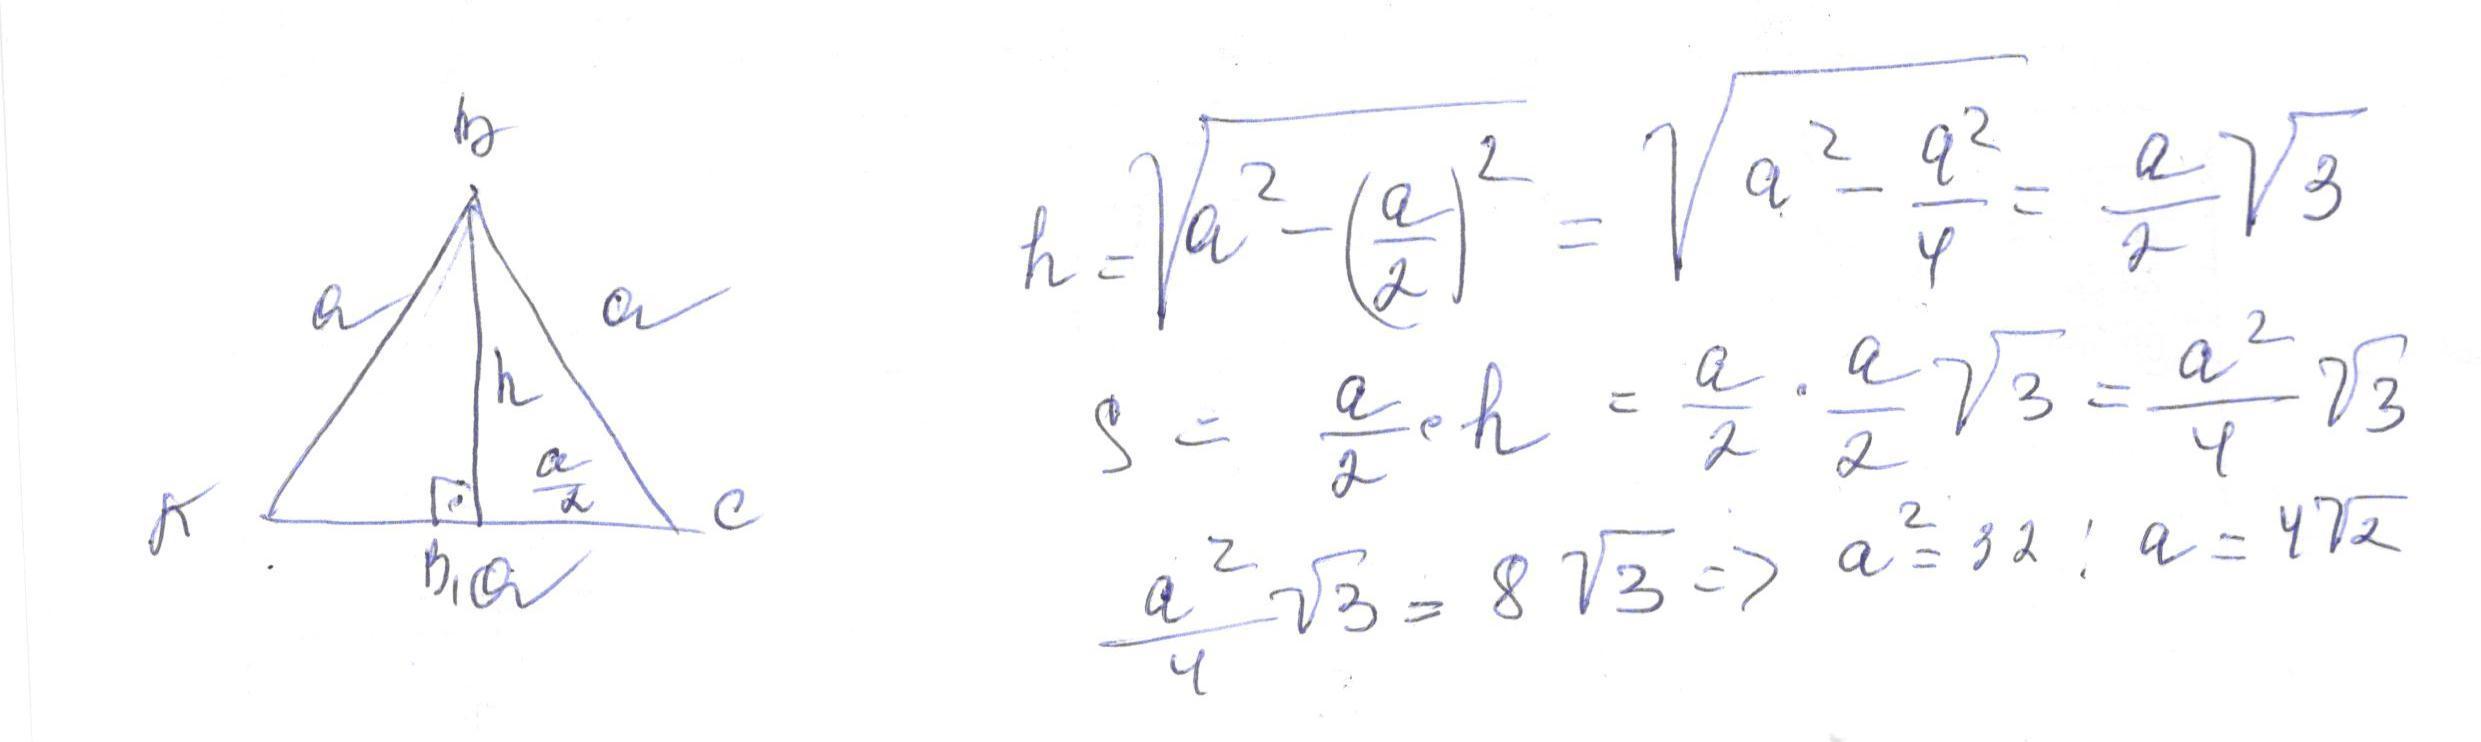 B
a
a
h
a/2
A
C
B₁
a
h = √(a² - (a/2)²) = √(a² - a²/4) = a/2 √3
S = a/2 · h = a/2 · a/2 √3 = a²/4 √3
a²/4 √3 = 8 √3 => a² = 32 ; a = 4√2